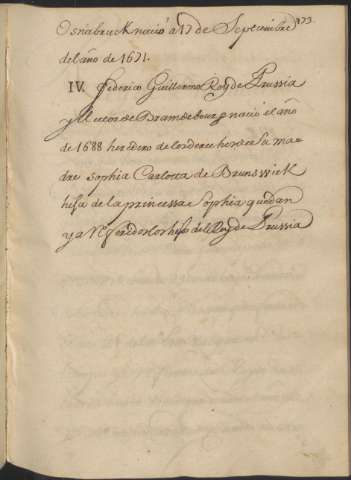 Osnabruck nació a 17 de Septiembre
del año de 1671.
IV. Federico Guillermo Rey de Prussia
y Elector de Bramdebourg nació el año
de 1688 heredero de los derechos de Sa ma
dre Sophia Carlotta de Brunswick
hija de la princessa Sophia quedan
ya referidos los hijos del Rey de Prussia